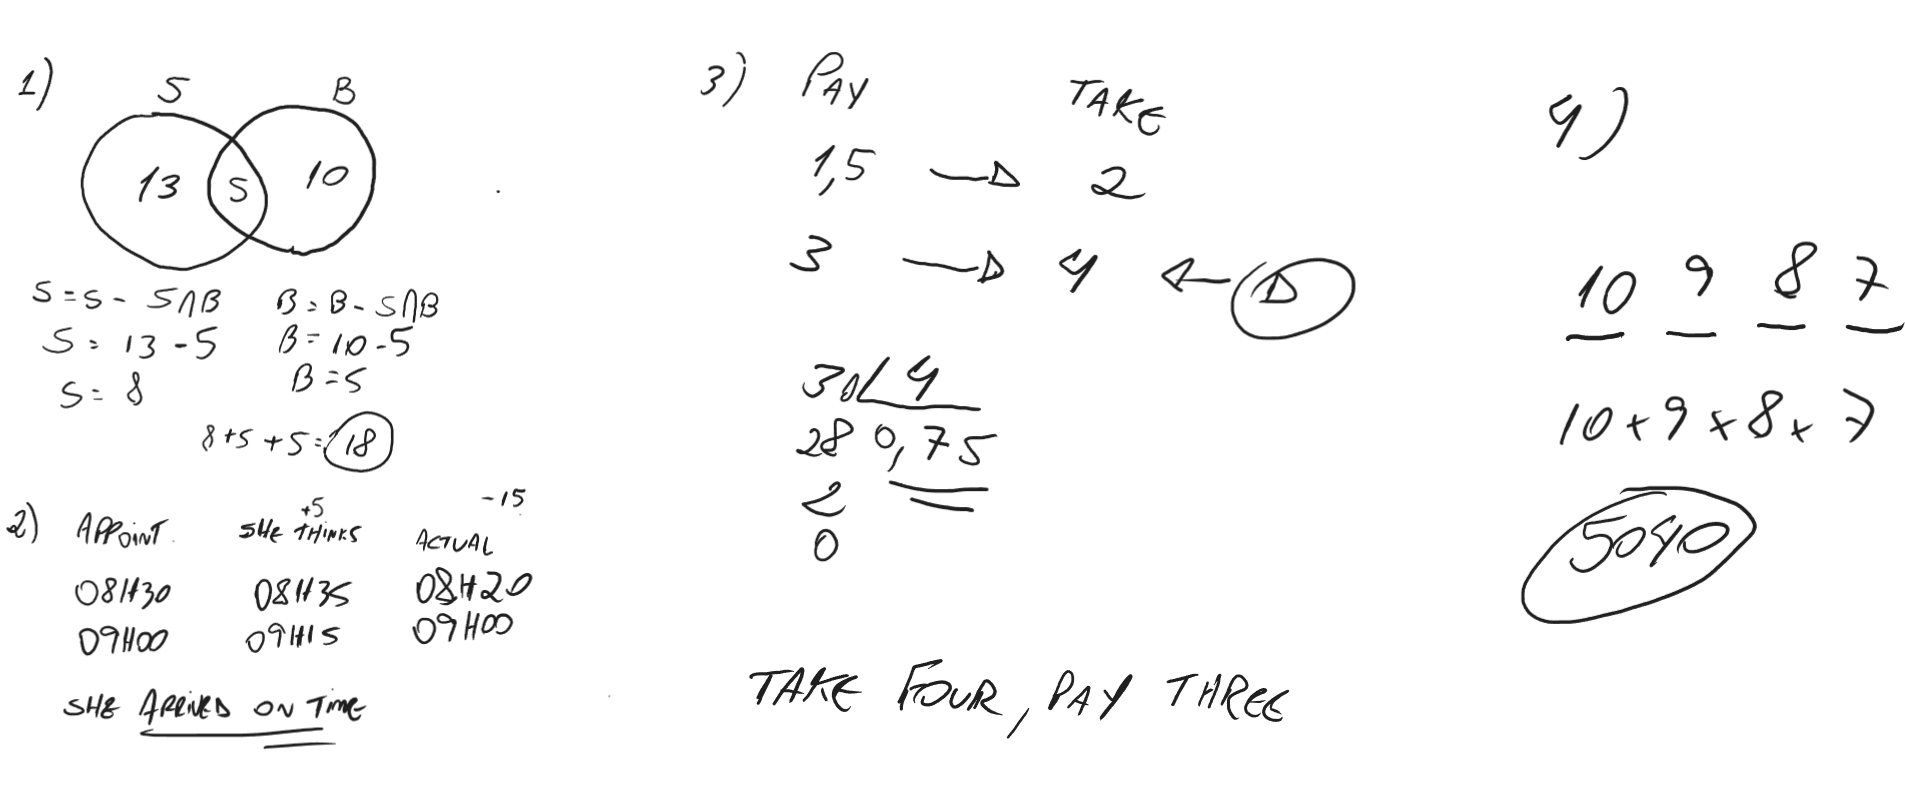 1) S B
13 5 10
S = S - S∩B B = B - S∩B
S = 13 - 5 B = 10 - 5
S = 8 B = 5
8 + 5 + 5 = 18
2) APPOINT. SHE THINKS +5 ACTUAL -15
08H30 08H35 08H20
09H00 09H15 09H00
SHE ARRIVED ON TIME
3) PAY TAKE
1,5 → 2
3 → 4 ← D
30 4
28 0,75
2
0
TAKE FOUR, PAY THREE
4)
10 9 8 7
10 x 9 x 8 x 7
5040